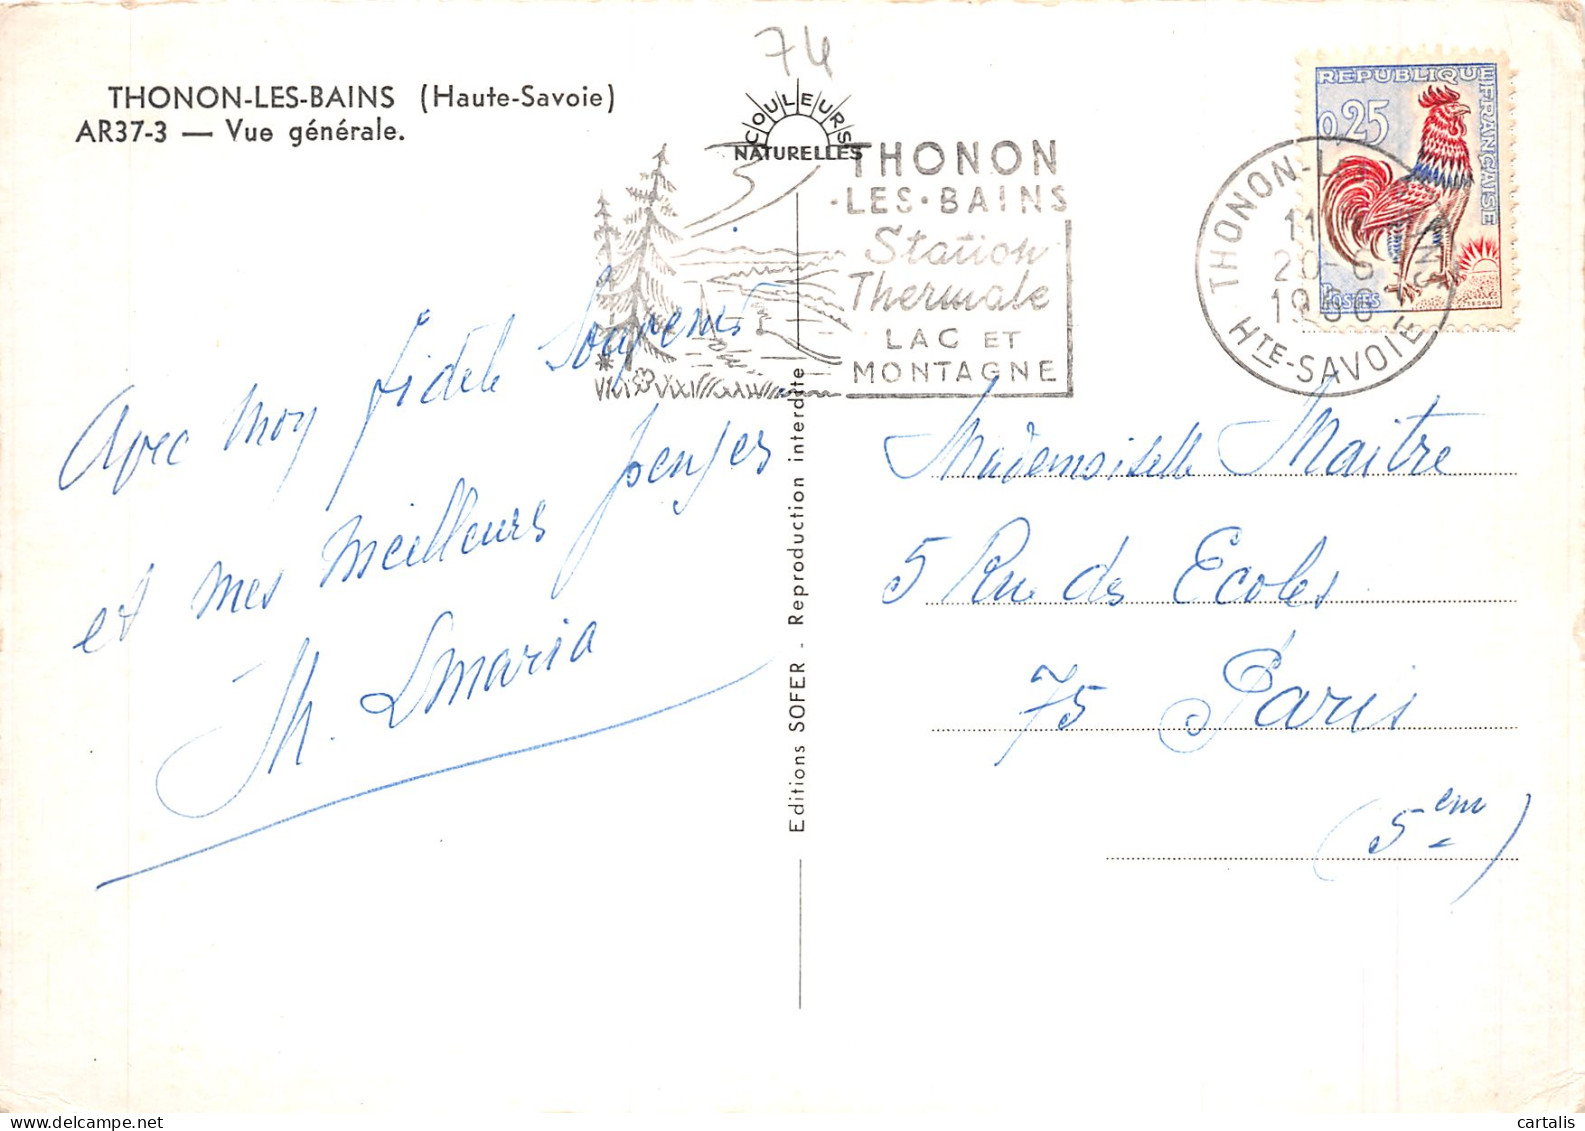 74
THONON-LES-BAINS (Haute-Savoie)
AR37-3 — Vue générale.
COULEURS
NATURELLES
THONON
·LES·BAINS
Station
Thermale
LAC ET
MONTAGNE
REPUBLIQUE FRANÇAISE
0,25
POSTES
THONON-LES-BAINS
11
20-6
1966
HTE-SAVOIE
Avec moy fidele Souvenir
et mes meilleurs penses
Th.
Editions SOFER - Reproduction interdite
Mademoiselle Maitre
5 Rue des Ecoles
75 Paris
(5em)
cartalis